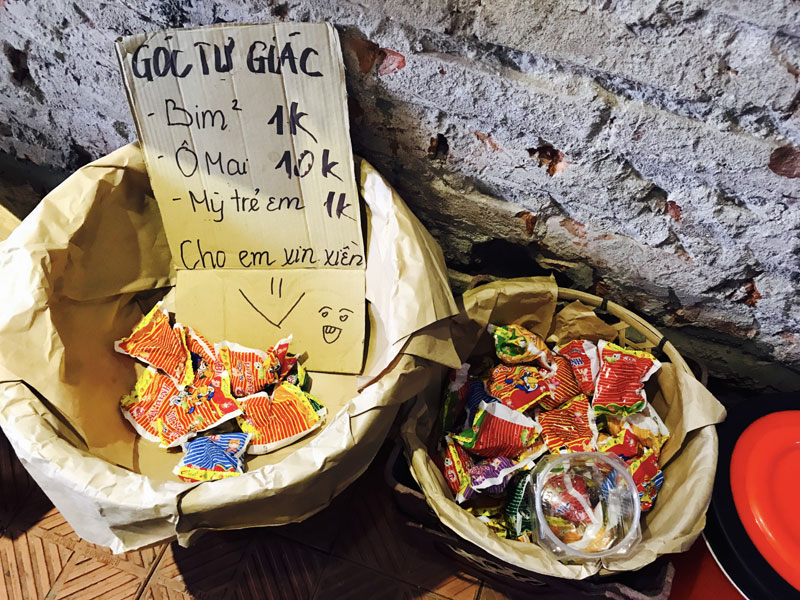 GÓC TỰ GIÁC
- Bim² 1k
- Ô Mai 10k
- Mỳ trẻ em 1k
Cho em xin xiền